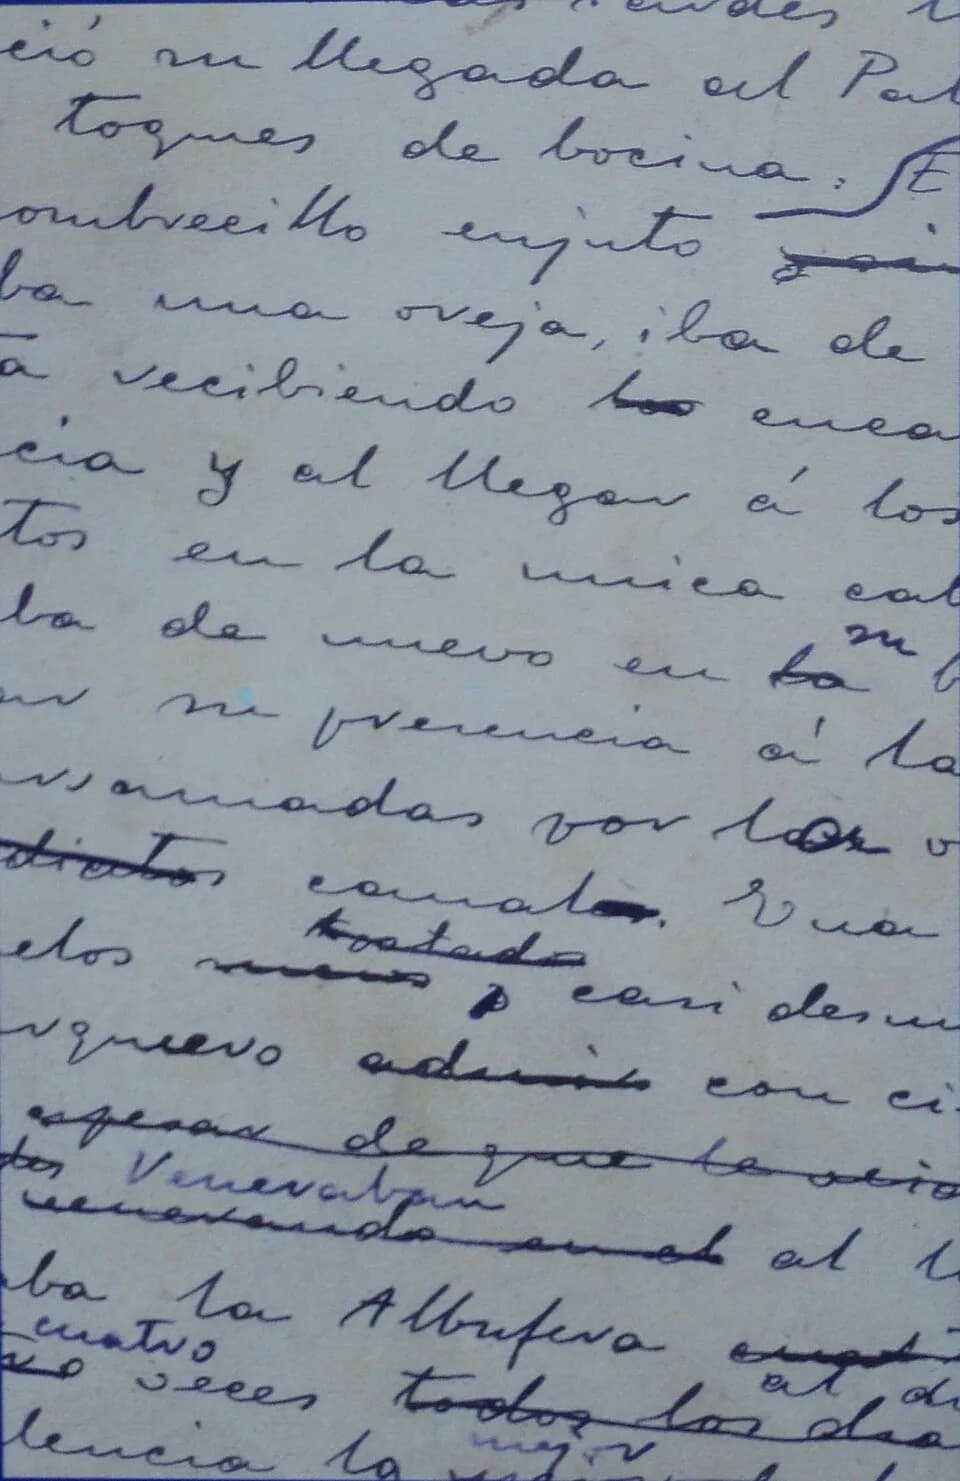 ció su llegada al Pal
toques de bocina. E
ombrecillo enjuto
ba una oveja, iba de
a recibiendo los enca
cia y al llegar á los
tos en la unica cal
su
ba de nuevo en la
ar su presencia á la
rramadas por los
diatos canal. Una
tostado
elos casi desnu
rquero con ci
apesar de que le
dos Veneraban
venerando en el al
ba la Albufera
cuatro
veces todos los dia
al
lencia la
mejor